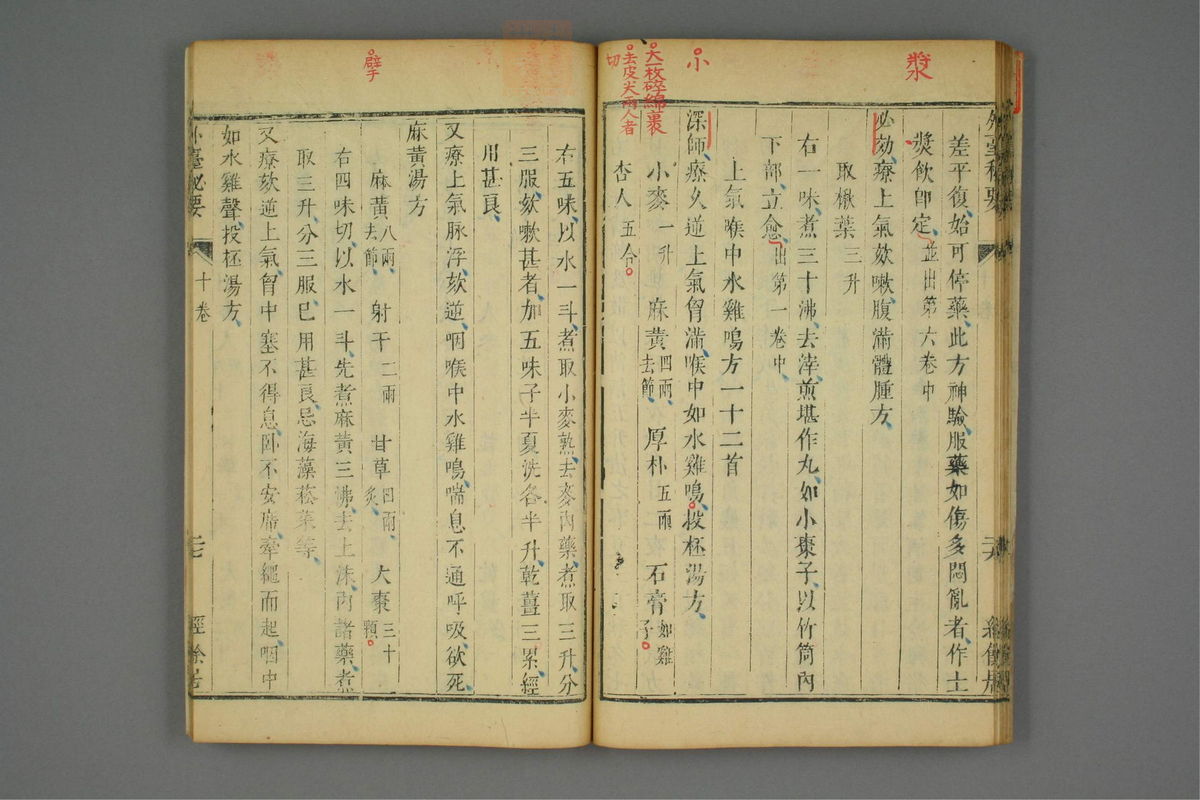 漿
小
大一枚碎綿裹
去皮尖兩人者
切
擘
差平復、始可停藥、此方神驗、服藥如傷多悶亂者、作土
漿飲卽定、並出第六卷中
必効療上氣欬嗽、腹滿體腫方、
取楸葉三升
右一味、煮三十沸、去滓、煎堪作丸、如小棗子、以竹筒內
下部、立愈、出第一卷中
上氣喉中水雞鳴方一十二首
深師、療久逆上氣胷滿、喉中如水雞鳴。投杯湯方、
小麥一升 麻黃四兩、去節 厚朴五兩 石膏如雞子。
杏人五合。
右五味、以水一斗、煮取小麥熟、去麥內藥、煮取三升、分
三服、欬嗽甚者、加五味子半夏洗各半升、乾薑三累、經
用甚良、
又療上氣脉浮、欬逆、咽喉中水雞鳴、喘息不通呼吸、欲死、
麻黃湯方
麻黃八兩、去節 射干二兩 甘草四兩、炙 大棗三十顆。
右四味切、以水一斗、先煮麻黃三沸、去上沫、內諸藥、煮
取三升、分三服、已用甚良、忌海藻菘菜等、
又療欬逆上氣胷中塞不得息、卧不安席、牽繩而起、咽中
如水雞聲、投杯湯方、
外臺秘要
十卷
經餘居